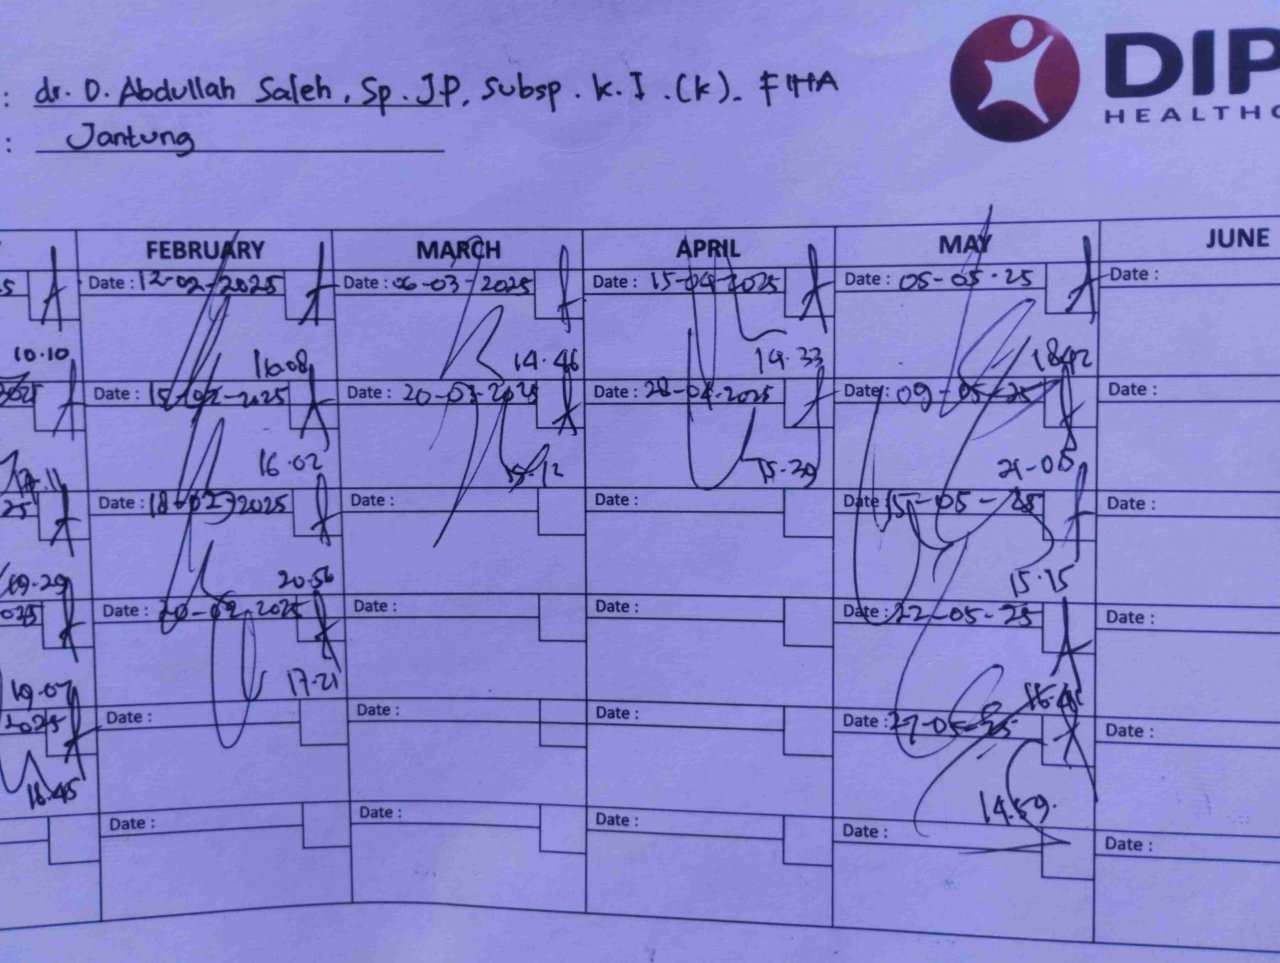 : dr. D. Abdullah Saleh, Sp. JP, Subsp. K.I. (K). FIHA
DIP
HEALTHC
: Jantung
FEBRUARY MARCH APRIL MAY JUNE
Date : 12-02-2025 Date : 06-03-2025 Date : 15-04-2025 Date : 05-05-25 Date :
10.10 16.08 14.46 14.33
Date : 15-02-2025 Date : 20-03-2025 Date : 28-04-2025 Date : 09-05-25 Date :
16.02 15.12 15.29
Date : 18-02-2025 Date : Date : Date : 15-05-25 Date :
19.29 20.56 15.15
Date : 20-02-2025 Date : Date : Date : 22-05-25 Date :
19.07 17.21
2025 Date : Date : Date : Date : 27-05-25 Date :
16.45 14.59
Date : Date : Date : Date : Date :